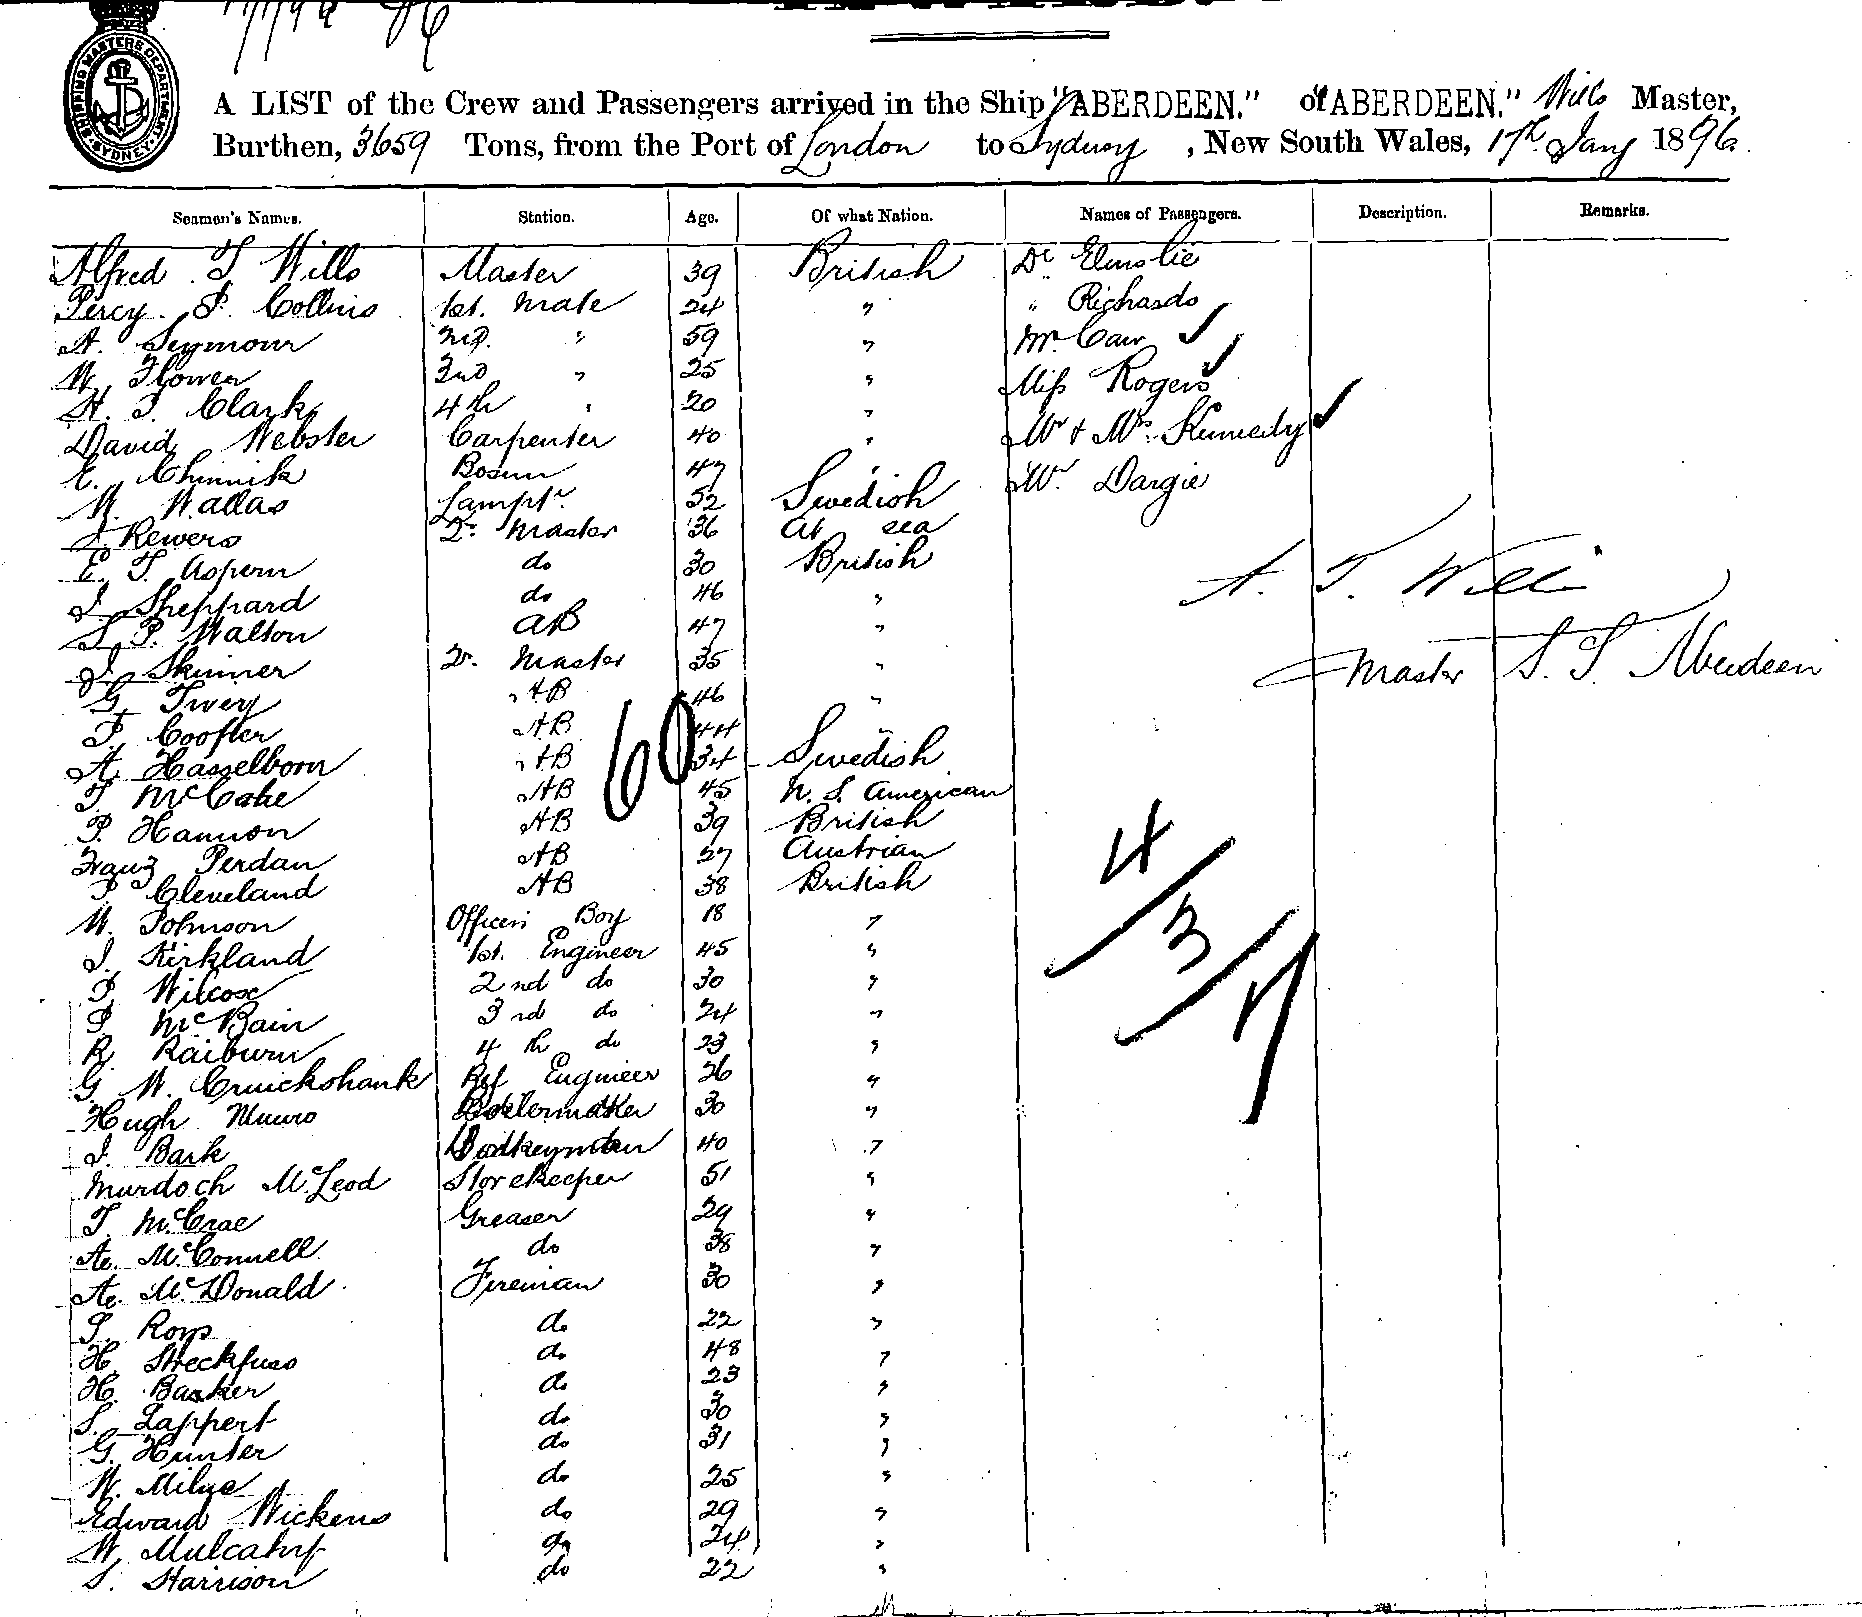 SHIPPING MASTERS DEPARTMENT SYDNEY
A LIST of the Crew and Passengers arrived in the Ship "ABERDEEN." of ABERDEEN." Wills Master,
Burthen, 3659 Tons, from the Port of London to Sydney, New South Wales, 17th Jany 1896.
Seamen's Names. Station. Age. Of what Nation. Names of Passengers. Description. Remarks.
Alfred T Wills Master 39 British Dr Elmslie
Percy P. Collins 1st. Mate 24 " " Richards
A. Seymour 2nd. " 59 " Mr.
W. Flower 3rd " 25 " Miss Rogers
H. T. Clark 4th " 20 " Mr & Mrs. Kennedy
David Webster Carpenter 40 " Mr. Dargie
E. Chinnik Bosun 47 "
W. Wallas Lamptr. 52 Swedish
J. Rewers Qr. Master 36 At sea
E. T. Aspern do 30 British
J. Sheppard do 46 "
S. P. Walton AB 47 "
J. Skinner Qr. Master 35 "
G. Twey AB 46 "
T. Coofter AB 44 "
A. Hasselborn AB 34 Swedish
T. McCabe AB 45 N. S. American
P. Hannon AB 39 British
Franz Perdan AB 27 Austrian
P. Cleveland AB 38 British
W. Johnson Officers Boy 18 "
J. Kirkland 1st. Engineer 45 "
P. Wilcox 2nd do 30 "
P. McBain 3rd do 24 "
R. Raiburn 4th do 23 "
G. W. Cruickshank Ref Engineer 26 "
Hugh Munro Boilermaker 30 "
J. Bark Donkeyman 40 "
Murdoch McLeod Storekeeper 51 "
T. McCrae Greaser 29 "
A. McConnell do 38 "
A. McDonald Fireman 30 "
T. Ross do 22 "
H. Streckfuss do 48 "
H. Barker do 23 "
S. Lappert do 30 "
G. Hunter do 31 "
W. Milne do 25 "
Edward Wickens do 29 "
W. Mulcahy do 24 "
S. Harrison do 22 "
A. T. Wills
Master S. S. Aberdeen
60
4/3/7